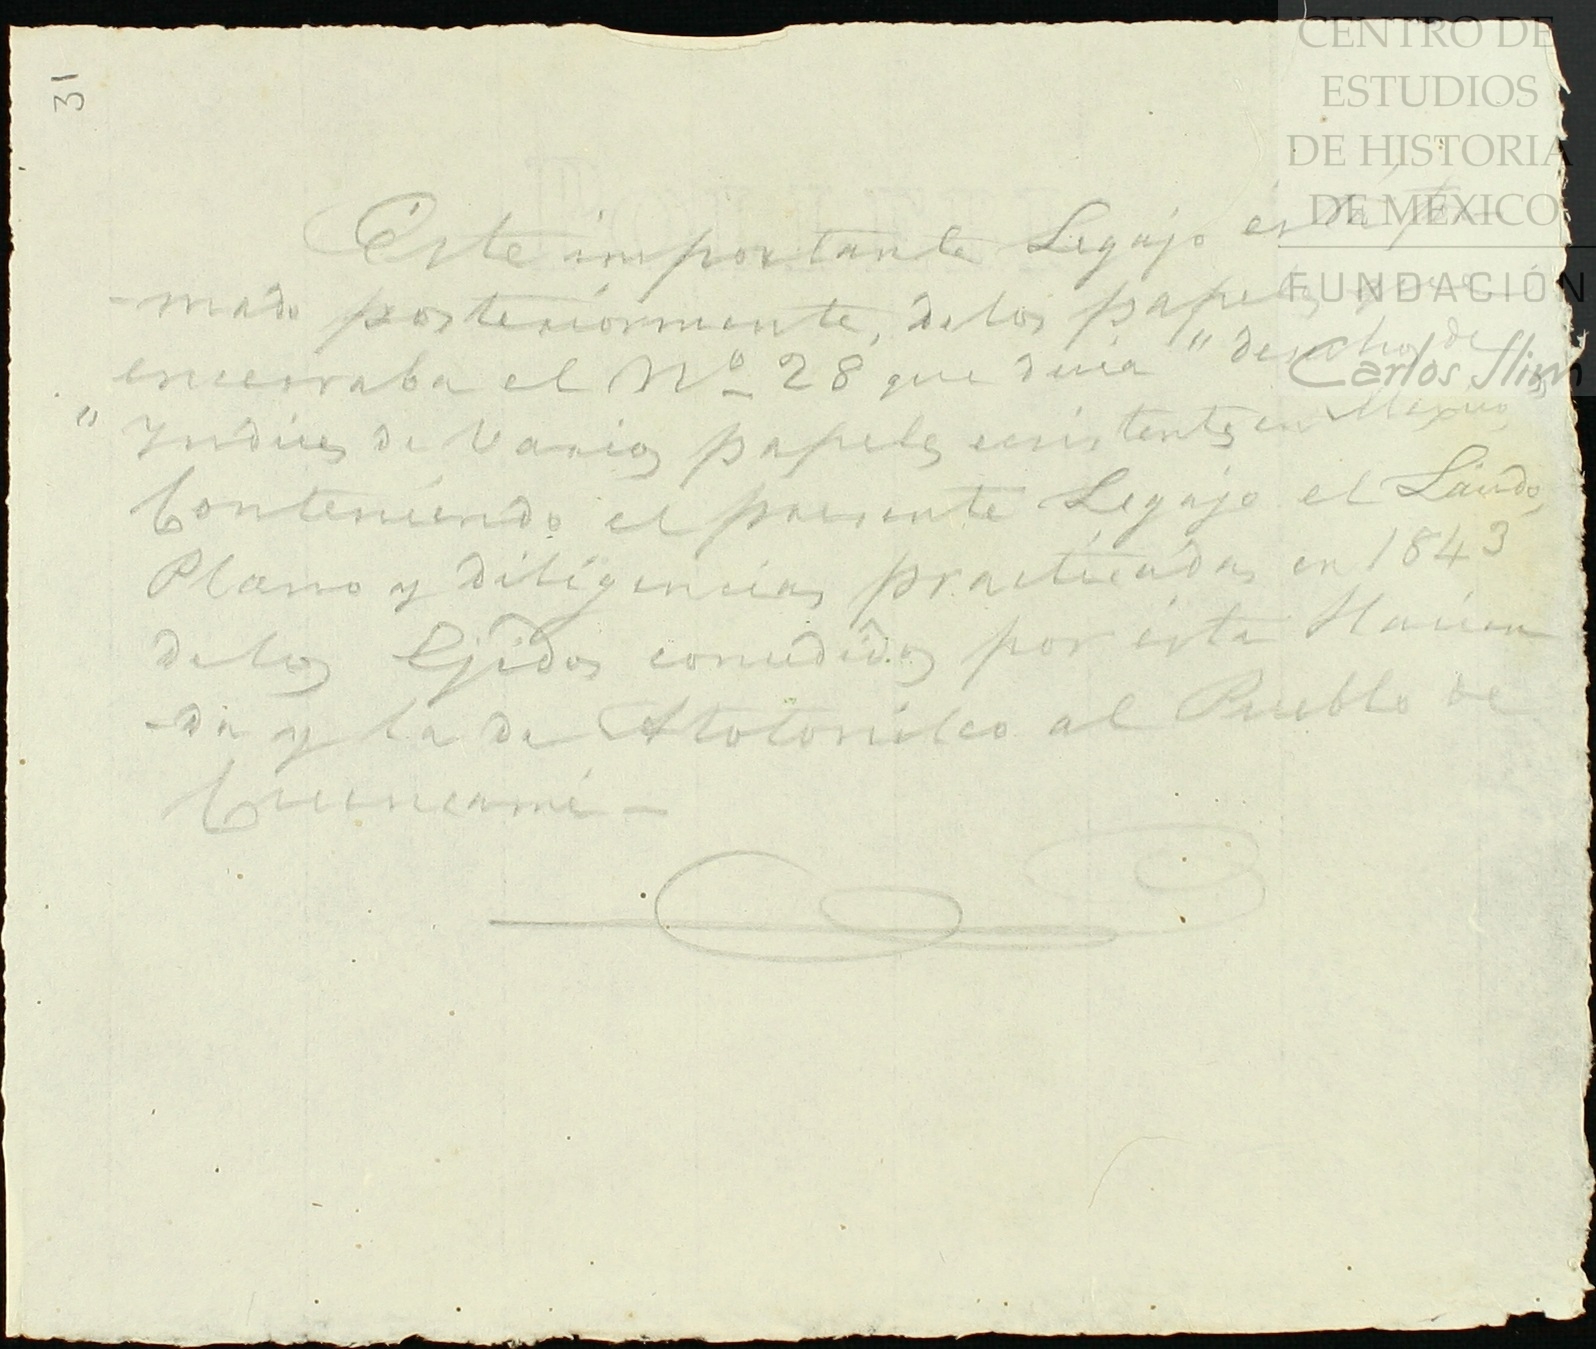 31
CENTRO DE
ESTUDIOS
DE HISTORIA
DE MÉXICO
FUNDACIÓN
Carlos Slim
Este importante Legajo está for-
-mado posteriormente, de los papeles que
encerraba el Nº 28 que decia " derechos de
" Yndices de Varios papeles existentes en Mexico,
Conteniendo el presente Legajo el Laudo,
Plano y diligencias practicadas en 1843
de los Ejidos concedidos por ésta Hacien
-da y la de Atotonilco al Pueblo de
Cuencamé -